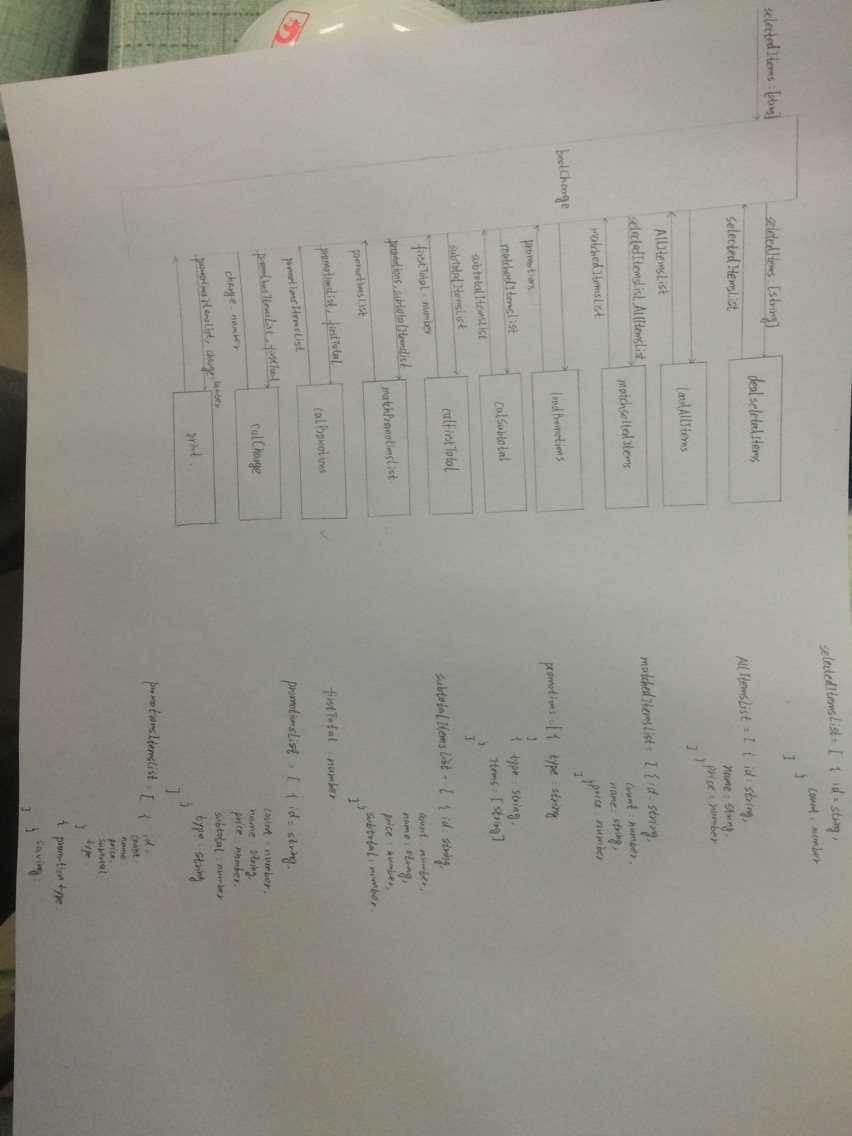 selectedItems : [string]
bestCharge
seletedItems : [string]
selectedItemsList
deal seletedItems
AllItemsList
loadAllItems
selectedItemsList, AllItemsList
matchedItemsList
matchSeltedItems
promotions
loadPromotions
matchedItemsList
subtotalItemsList
calSubtotal
subtotalItemsList
firstTotal : number
calFirstTotal
promotions, subtotalItemsList
promotionsList
matchPromotionsList
promotionsList, firstTotal
promotionsItemsList
calPromotions
promotionsItemsList, firstTotal
change : number
calCharge
promotionsItemsList, change : number
print
selectedItemsList = [ { id = string,
count : number
}
]
AllItemsList = [ { id : string,
name : string,
price : number
}
]
matchedItemsList = [ { id : string,
count : number,
name : string,
price : number
}
]
promotions = [ { type : string
}
{ type : string,
Items : [string]
}
]
subtotalItemsList = [ { id : string,
count : number,
name : string,
price : number,
subtotal : number.
}
]
firstTotal : number
promotionsList = [ { id = string,
count : number,
name : string,
price : number,
subtotal : number
type : string
}
]
promotionsItemsList : [ { id :
count :
name
price :
subtotal :
type :
}
{ promotion type :
saving :
}
]